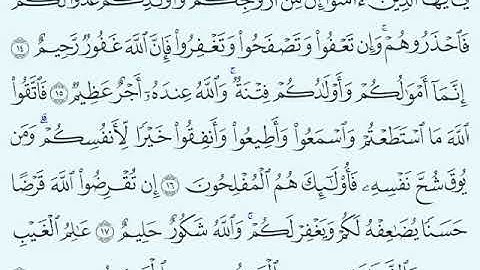 يَٰٓأَيُّهَا ٱلَّذِينَ ءَامَنُوٓا۟ إِنَّ مِنْ أَزْوَٰجِكُمْ وَأَوْلَٰدِكُمْ عَدُوًّا لَّكُمْ
فَٱحْذَرُوهُمْ ۚ وَإِن تَعْفُوا۟ وَتَصْفَحُوا۟ وَتَغْفِرُوا۟ فَإِنَّ ٱللَّهَ غَفُورٌ رَّحِيمٌ ١٤
إِنَّمَآ أَمْوَٰلُكُمْ وَأَوْلَٰدُكُمْ فِتْنَةٌ ۚ وَٱللَّهُ عِندَهُۥٓ أَجْرٌ عَظِيمٌ ١٥ فَٱتَّقُوا۟
ٱللَّهَ مَا ٱسْتَطَعْتُمْ وَٱسْمَعُوا۟ وَأَطِيعُوا۟ وَأَنفِقُوا۟ خَيْرًا لِّأَنفُسِكُمْ ۗ وَمَن
يُوقَ شُحَّ نَفْسِهِۦ فَأُو۟لَٰٓئِكَ هُمُ ٱلْمُفْلِحُونَ ١٦ إِن تُقْرِضُوا۟ ٱللَّهَ قَرْضًا
حَسَنًا يُضَٰعِفْهُ لَكُمْ وَيَغْفِرْ لَكُمْ ۚ وَٱللَّهُ شَكُورٌ حَلِيمٌ ١٧ عَٰلِمُ ٱلْغَيْبِ